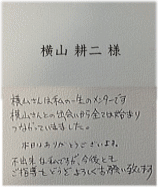 横山 耕二 様
横山さんは私の一生のメンターです
横山さんとの出会いから全ては始まり
つながっていきました。
本日はありがとうございます。
不出来な私ですが、今後とも
ご指導をどうぞよろしくお願い致します